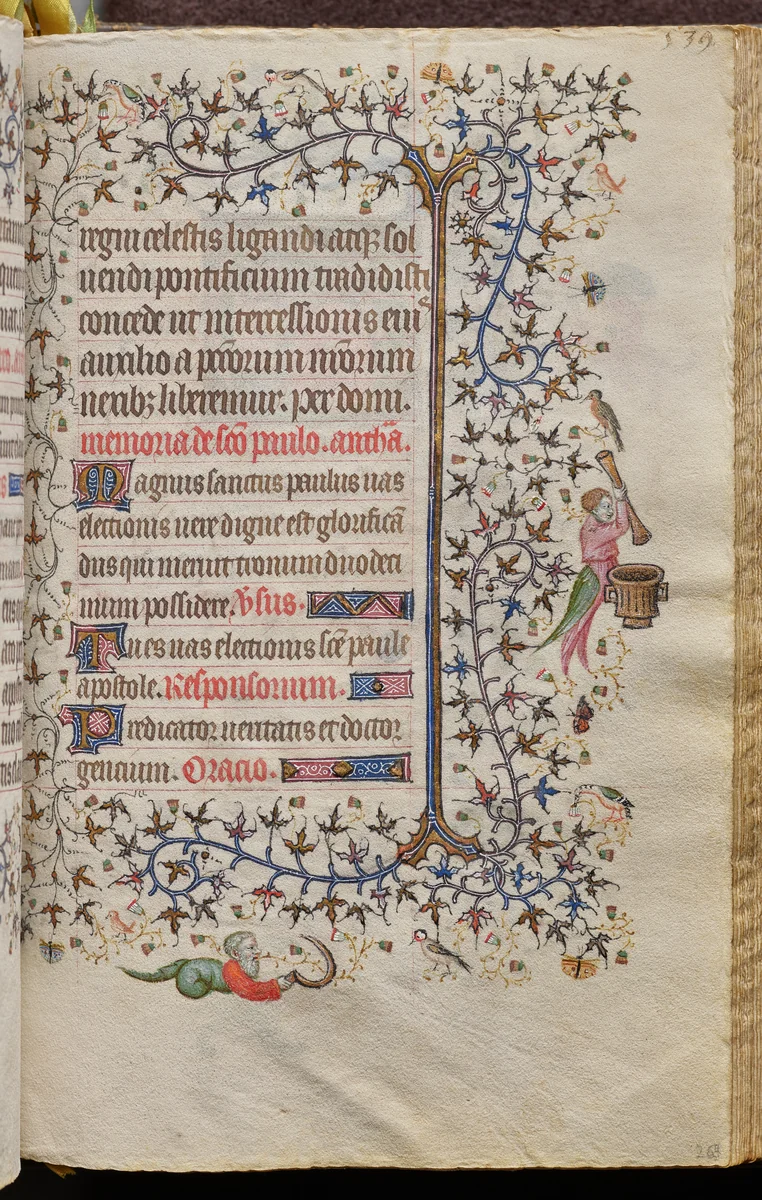 539
regni celestis ligandi atqꝫ sol
uendi pontificium tradidisti
concede ut intercessionis eiuˀ
auxilio a pctōrum nrōrum
nexibꝫ liberemur. per domi.
memoria de scō paulo. anthā.
Magnus sanctus paulus uas
electionis uere digne est glorificā
dus qui meruit tronum duode
mum possidere. Vsus.
Tu es uas electionis scē paule
apostole. Responsorium.
Predicator ueritatis et doctor
gentium. Oracio.
263